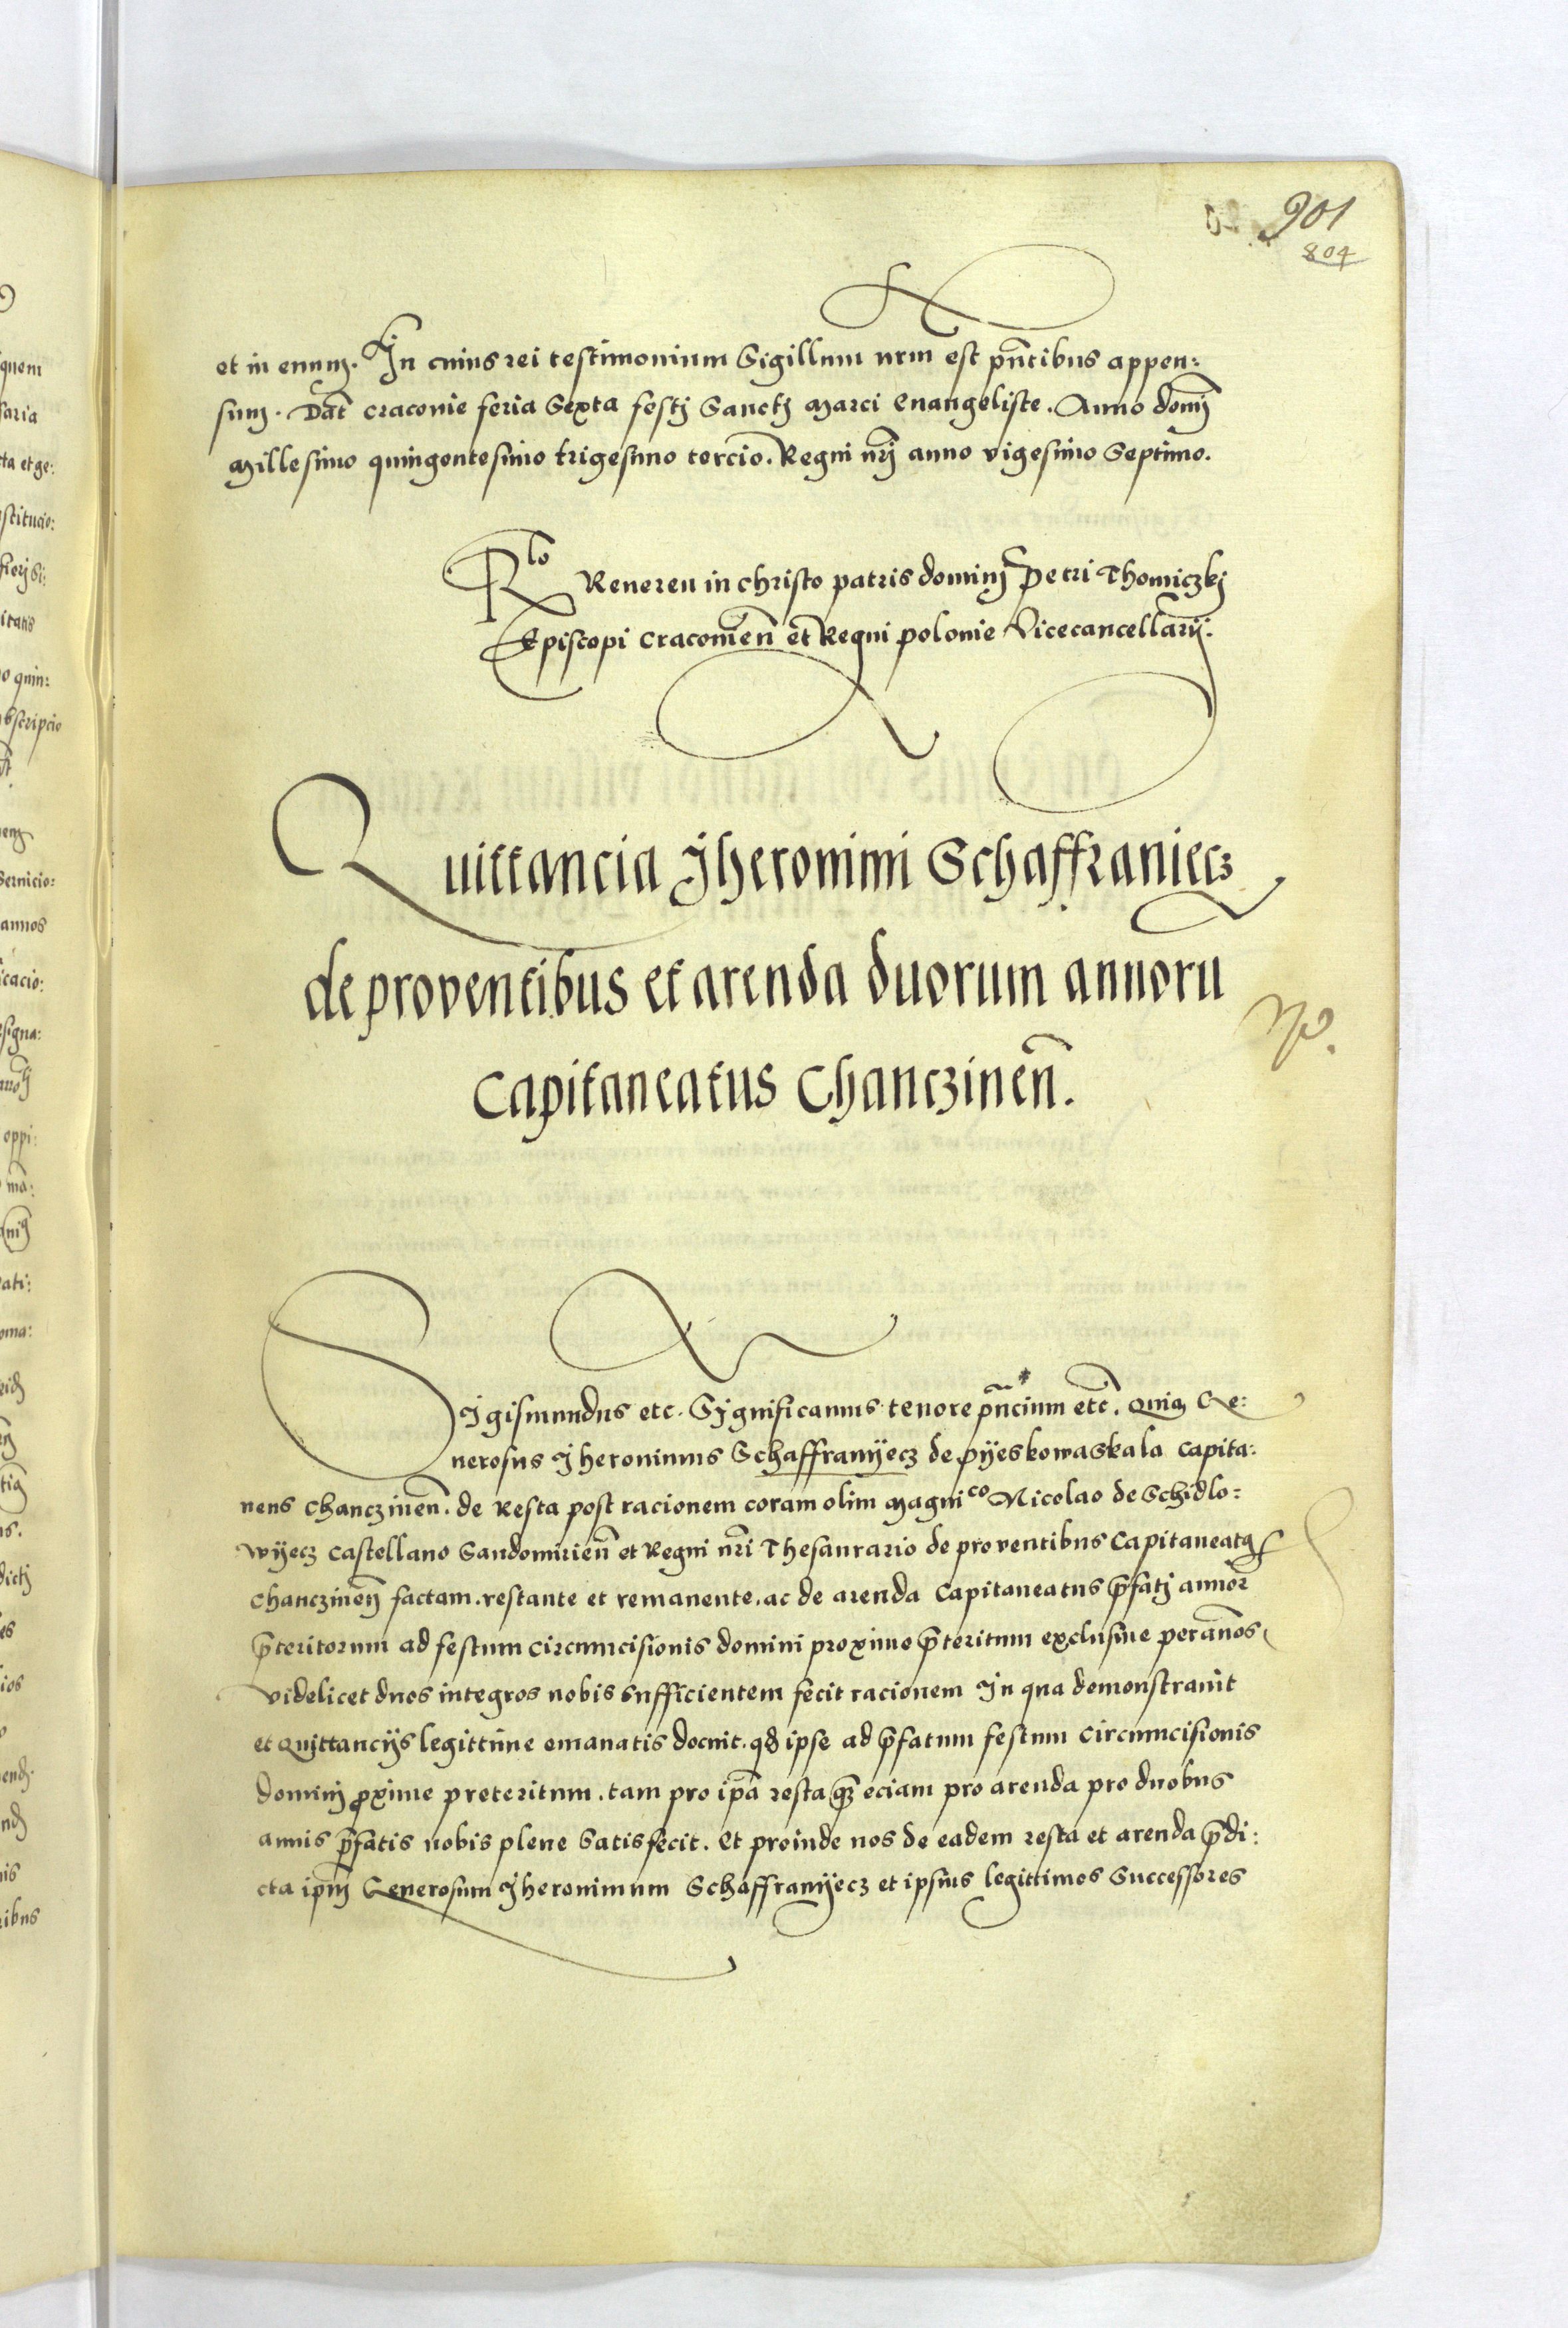 901
804
et in euum. In cuius rei testimonium Sigillum nrm est pñtibus appen:
sum. Dat Craconie feria Sexta festj Sanctj Marci Euangeliste. Anno domj
Millesimo quingentesimo trigesimo tercio. Regni nrj anno vigesimo Septimo.
Rlo Reueren in christo patris dominj Petri Thomiczkj
Episcopi Cracouien et Regni polonie Vicecancellarij.
Quittancia Jheronimi Schaffraniecz
de proventibus et arenda duorum annoru
Capitaneatus Chanczinen.
Sigismundus etc. Significamus tenore pñcium etc. Quia Ge:
nerosus Jheronimus Schaffranÿecz de pÿeskowaskala Capita:
neus Chanczinen. de Resta post racionem coram olim Magnico Nicolao de Schidlo:
wÿecz Castellano Sandomirien et Regni nrj Thesaurario de proventibus Capitaneatq
Chanczinen factam. restante et remanente. ac de arenda Capitaneatus pfatj annor
pteritorum ad festum Circumcisionis domini proximo pteritum exclusiue per annos
videlicet duos integros nobis sufficientem fecit racionem In qua demonstrauit
et Quittancijs legittime emanatis docuit. qd ipse ad pfatum festum Circumcisionis
dominj proxime preteritum. tam pro ipa resta qz eciam pro arenda pro duobus
annis pfatis nobis plene Satisfecit. Et proinde nos de eadem resta et arenda pdi:
cta ipm Generosum Jheronimum Schaffranÿecz et ipsius legittimos Successores